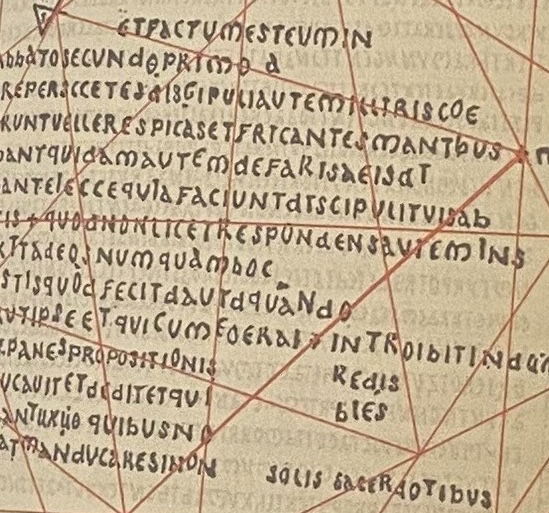 ETFACTUMESTEUMIN
AbbATOSECUNdOPRIMO a
REPERSCCETESAISGIPULIAUTEMILLIRISCOE
RUNTUELLERESPICASETFRICANTESMANTbUS + n
bANTQUIdAMAUTEMdEFARISAEISAT
ANTELECCEQUIAFACIUNTATSCIPULITUISAb
TIS + QUOdNONLICETRESPONdENSAUTEMINS
XTTAdEOSNUMQUAMhOC
STISQUOdFECITdAUTdQUANdO
RUTIPSEETQUICUMEOERAI + INTROIbITINdUM
PANESPROPOSITIONIS REdIS
UCAUITETdEdITETQUI bLES
ANTUXUO QUIbUSNO
ATMANdUCARESINON SOLIS SACERdOTIbUS